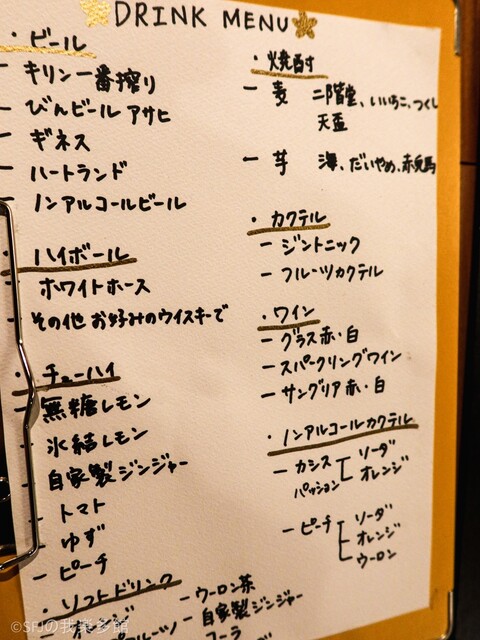 DRINK MENU
・ビール
- キリン一番搾り
- びんビール アサヒ
- ギネス
- ハートランド
- ノンアルコールビール
・ハイボール
ホワイトホース
- その他 お好みのウイスキーで
・チューハイ
- 無糖レモン
- 氷結レモン
- 自家製ジンジャー
- トマト
- ゆず
- ピーチ
・ソフトドリンク
- ウーロン茶
- 自家製ジンジャー
コーラ
・焼酎
- 麦 二階堂、いいちこ、つくし
天盃
- 芋 海、だいやめ、赤兎馬
・カクテル
- ジントニック
- フルーツカクテル
・ワイン
- グラス赤・白
- スパークリングワイン
- サングリア赤・白
・ノンアルコールカクテル
- カシス ソーダ
パッション オレンジ
- ピーチ ソーダ
オレンジ
ウーロン
©SFJの我楽多館